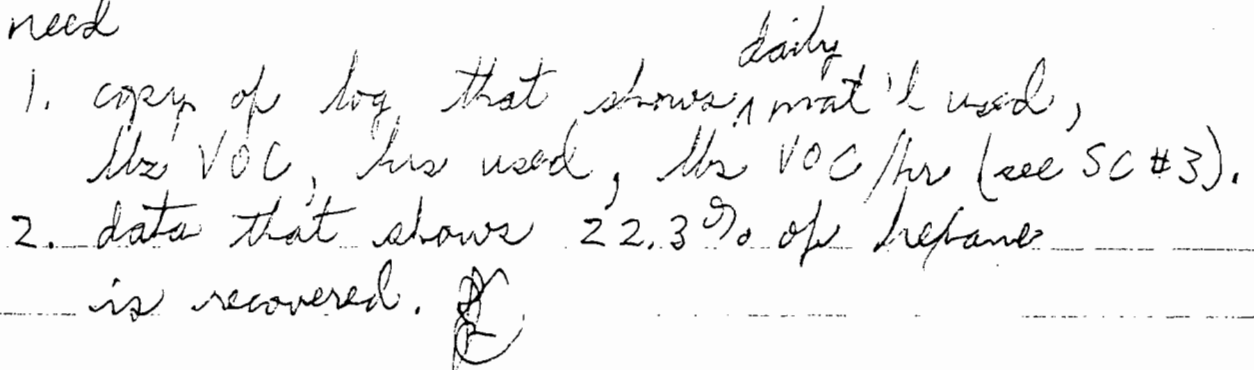 need
1. copy of log that shows daily mat'l used,
lbs VOC, hrs used, lbs VOC/hr (see SC #3).
2. data that shows 22.3% of heptane
is recovered.